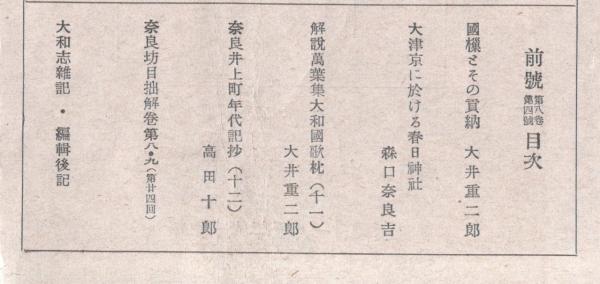 前號 第八卷第四號 目次
國樔とその貢納 大井重二郎
大津京に於ける春日神社
森口奈良吉
解說萬葉集大和國歌枕（十一）
大井重二郎
奈良井上町年代記抄（十二）
高田十郎
奈良坊目拙解卷第八・九（第廿四回）
大和志雜記・編輯後記